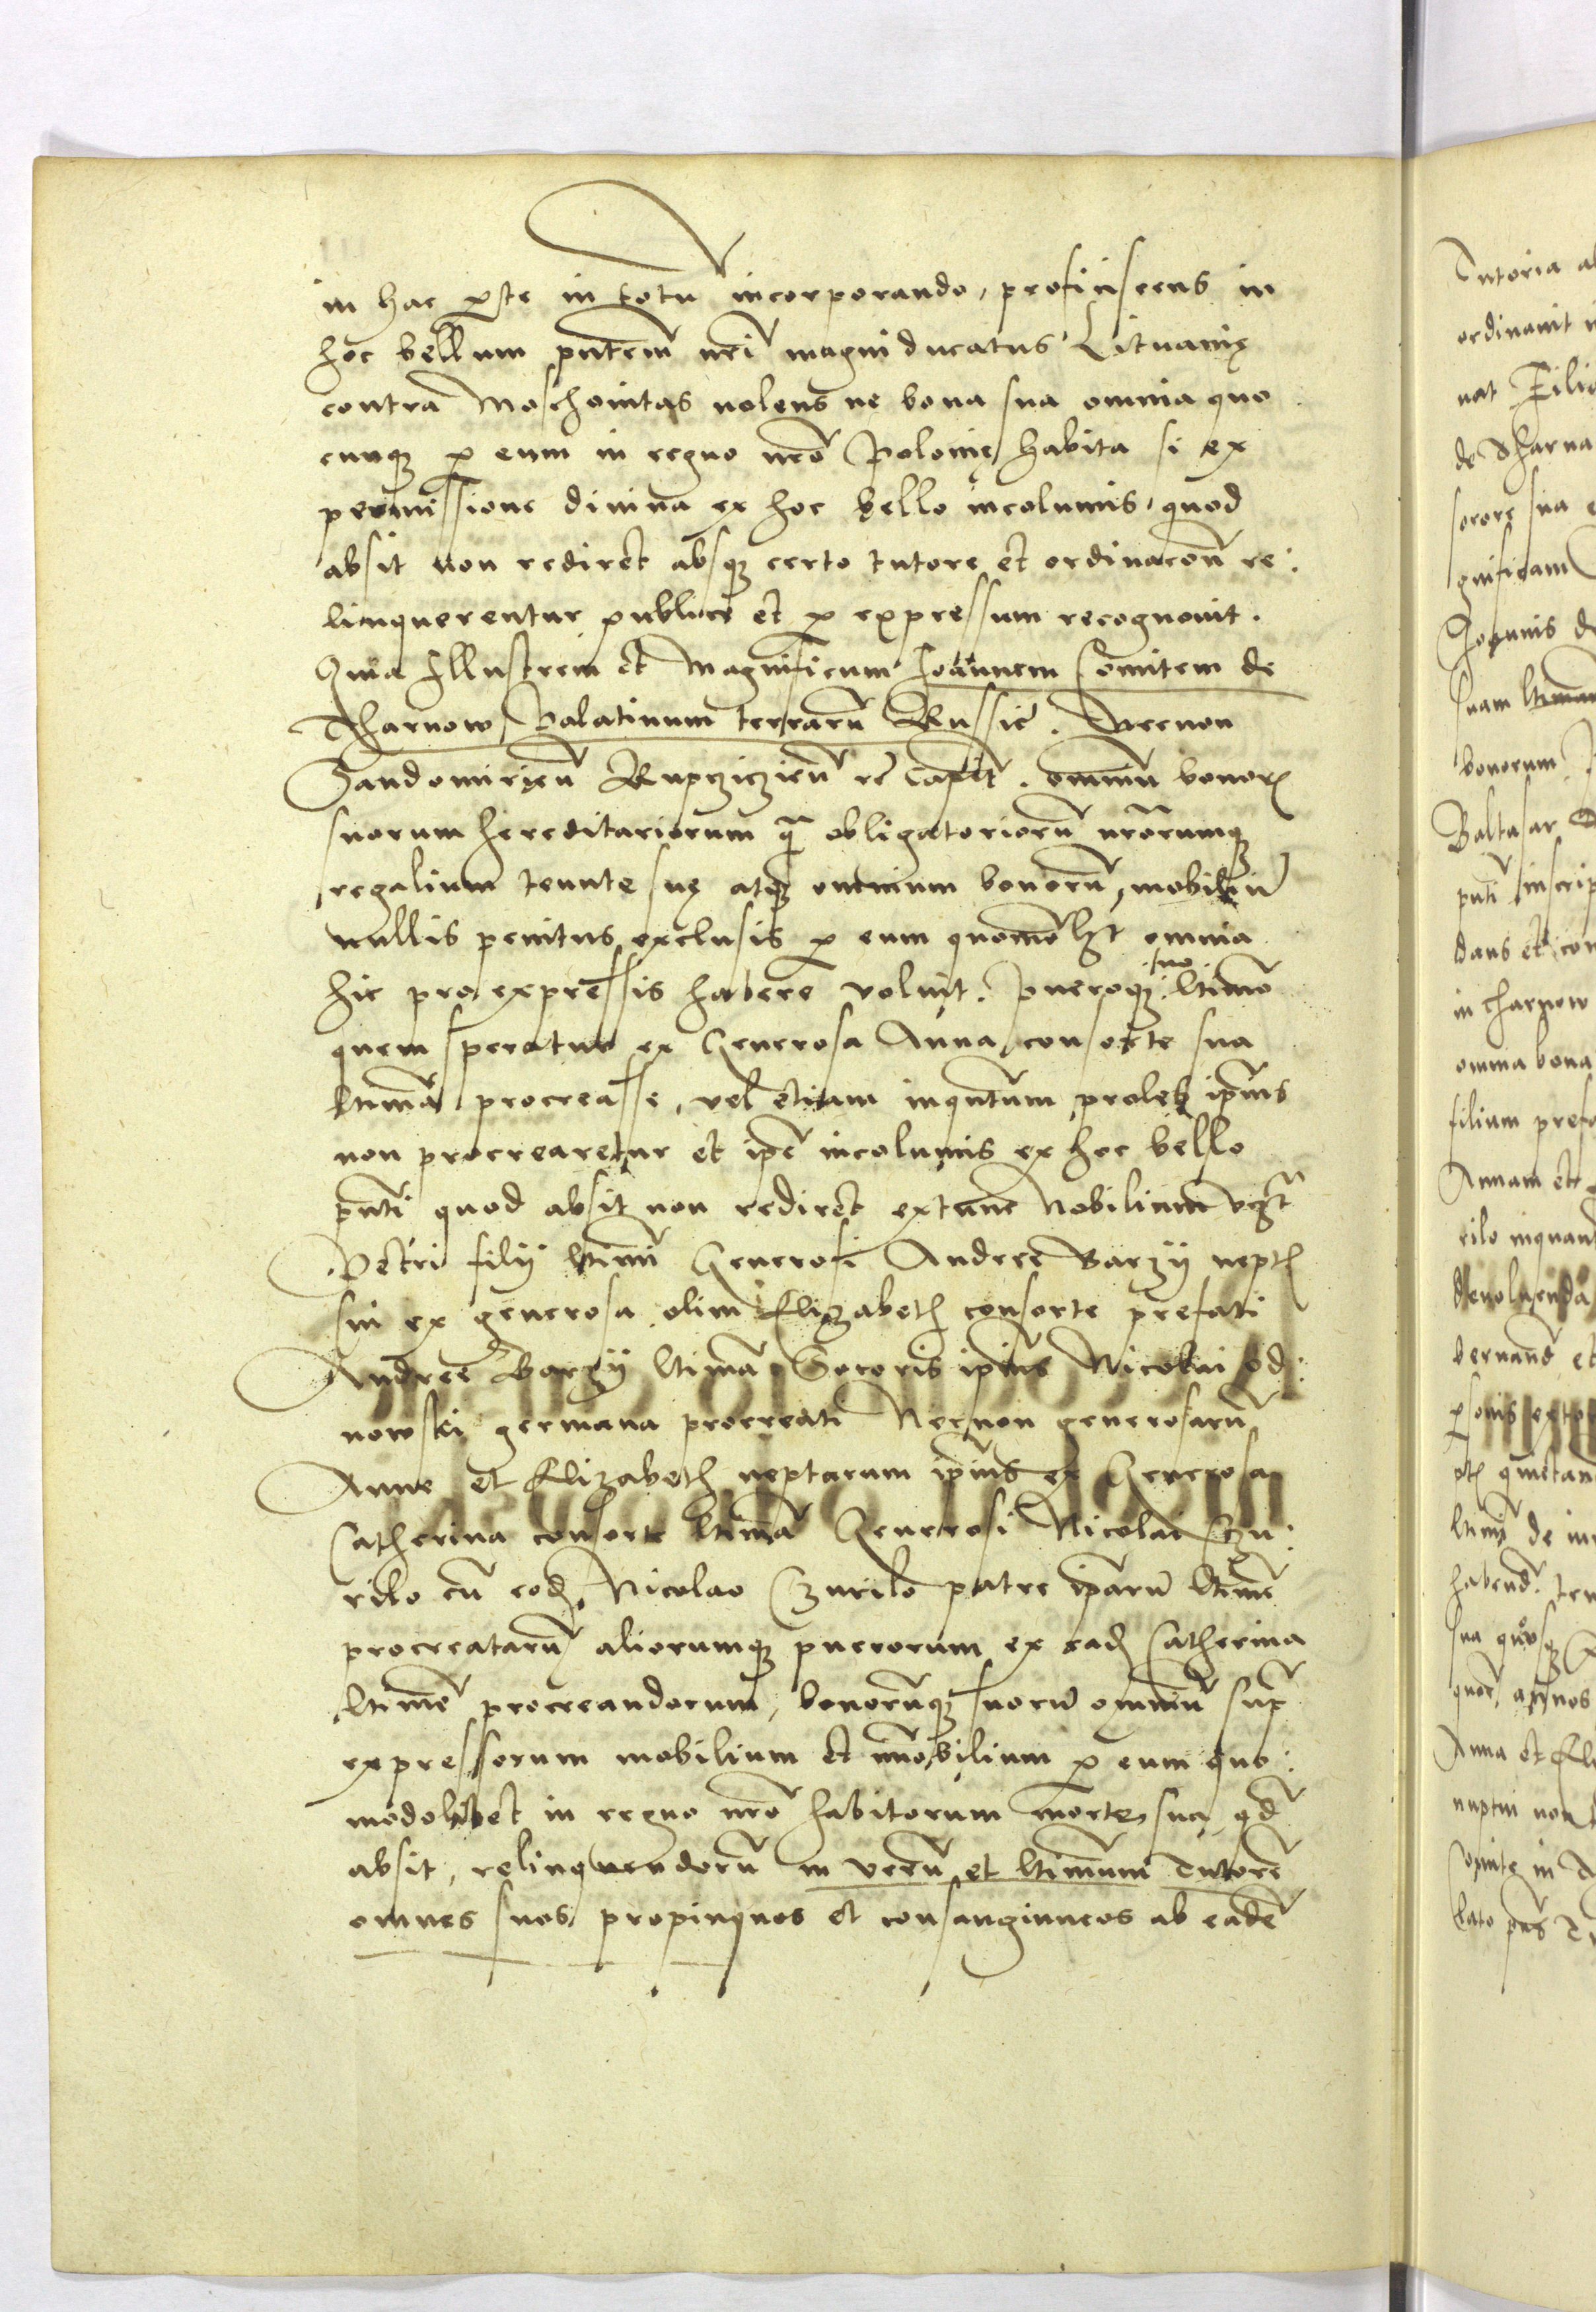 in hac p̱te in totu incorporando, proficiscens in
hoc bellum pn̄tem nrī magni ducatus Lituanię
contra Moschouitas nolens ne bona sua omnia quo
cunqꝫ ꝑ eum in regno nrō Polonię habita si ex
permissione diuina ex hoc bello incolumis, quod
absit non rediret absqꝫ certo tutore et ordinacoñ re:
linquerentur publice et ꝑ expressum recognouit.
Quia Illustrem et Magnificum Joannem Comitem de
Tharnow Palatinum terrarū Russie. Necnon
Sandomirień Rupczicień rc̄ Capit̄. omniū bonorꝫ
suorum hereditariorum q̄ obligatoriorū nr̄orumqꝫ
regalium tenute suę atqꝫ omnium bonorū, mobiliū
nullis penitus exclusis ꝑ eum quomōlꝫt omnia
hic pro expressis habere voluit. Pueroqꝫ suo ltimō
quem speratur ex Generosa Anna, consorte sua
ltimā procreasse, vel etiam inqūntum proles ip̄ius
non procrearetur et ip̄e incolumis ex hoc bello
pn̄ti quod absit non rediret extunc Nobilium vꝫt
Petri filij ltimi Generosi Andree Barzij nept
sui ex generosa olim Elizabeth consorte prefati
Andree Barzij ltimā Sororis ip̄ius Nicolai Od:
nowski germana procreati Necnon generosarū
Anne et Elizabeth neptarum ip̄ius ex Generosa
Catherina consorte ltimā Generosi Nicolai Czu:
rilo cū eod, Nicolao Czurilo patre ip̄arū ltimē
procreatarū aliorumqꝫ puerorum ex ead Catherina
ltimē procreandorum, bonorūqꝫ suorū omniū sup̄
expressorum mobilium et im̄obilium ꝑ eum quo:
modolibet in regno nrō habitorum morte sua qd̄
absit, relinquendorū in verū et ltimum Tutorē
omnes suos propinquos et consanguineos ab eadē
Tutoria
ordinauit
nat Filio
de Tharno
sorore sua
gnificam
Joannis de
suam ltimam
bonorum
Baltasar
pn̄ti inscrip
dans et con
in Tharnow
omnia bona
filium prefa
Annam et
rilo inquant
deuoluenda
bernand et
ptꝫ quietan
ltimi de
habend. ten
sua quousqꝫ
annos
Anna et Eli
nuptui non
lato pns